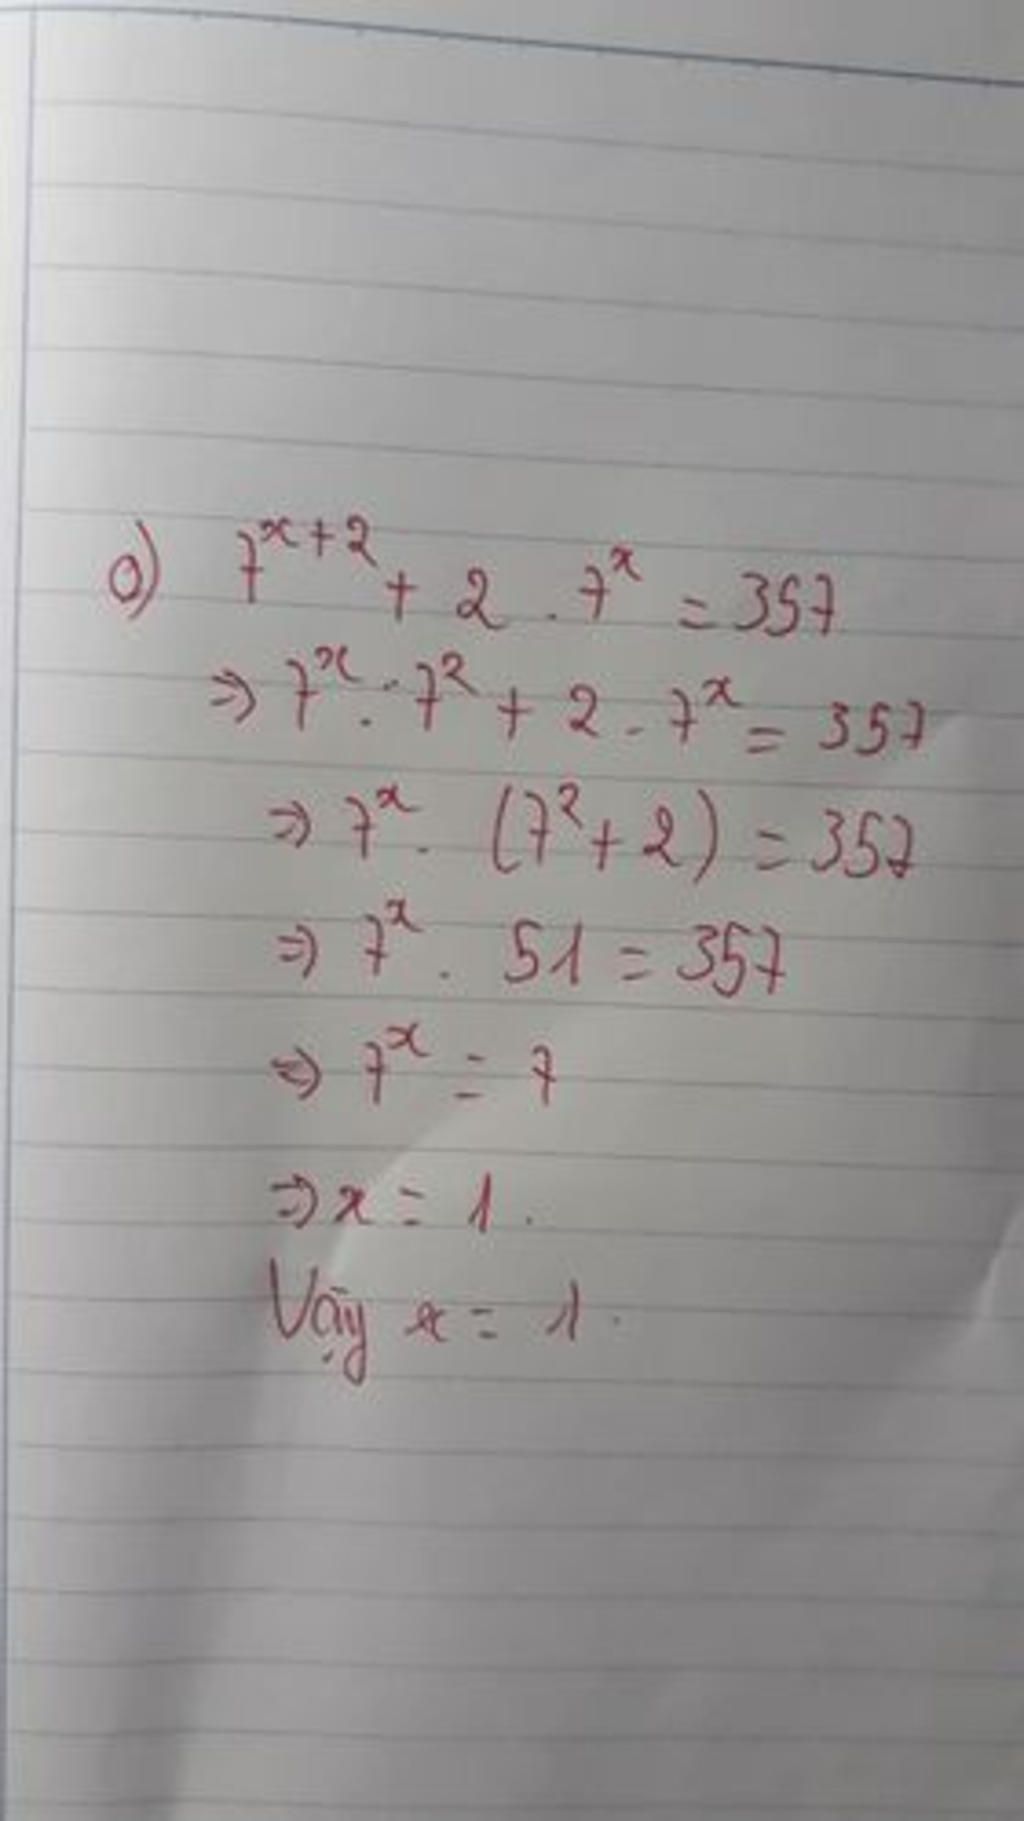 a) 7^{x+2} + 2 . 7^x = 357
⇒ 7^x . 7^2 + 2 . 7^x = 357
⇒ 7^x . (7^2 + 2) = 357
⇒ 7^x . 51 = 357
⇒ 7^x = 7
⇒ x = 1.
Vậy x = 1.